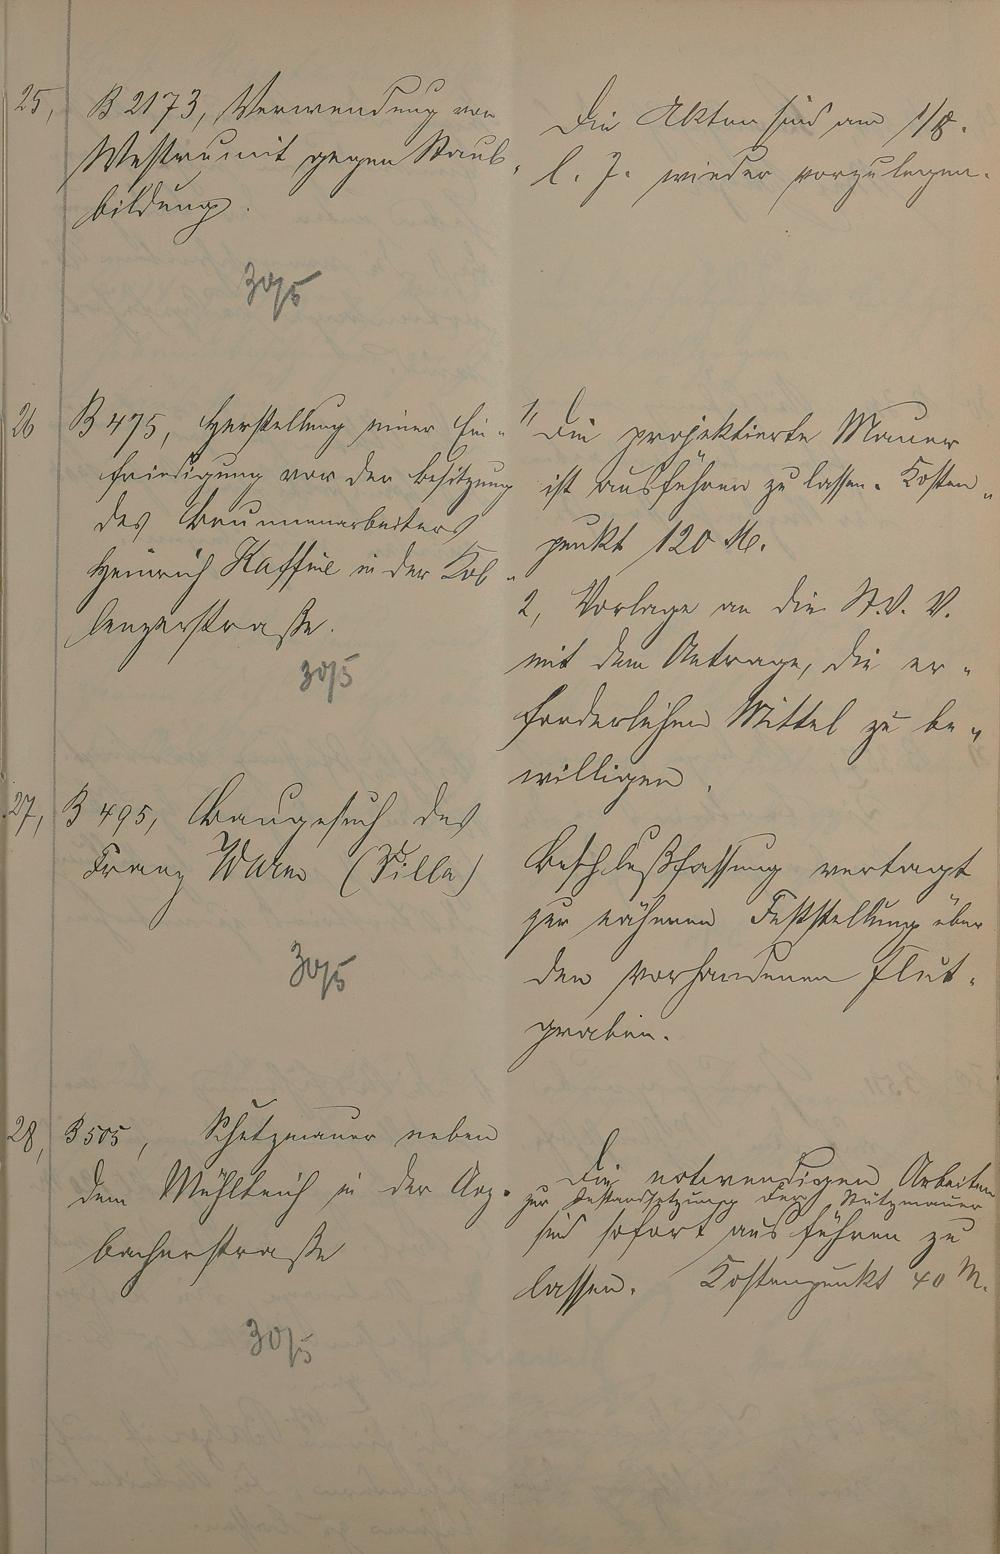 25, B 2173, Verwendung von
Westrumit gegen Staub-
bildung.
30/5
Die Akten sind am 1/8.
l. J. wieder vorzulegen.
26 B 475, Herstellung einer Ein-
friedigung vor der Besitzung
des Brunnenarbeiters
Heinrich Kaffine in der Kob-
lenzerstraße.
30/5
1, Die projektierte Mauer
ist ausführen zu lassen. Kosten-
punkt 120 M.
2, Vorlage an die St.V.V.
mit dem Antrage, die er-
forderlichen Mittel zu be-
willigen.
27, B 495, Baugesuch des
Franz (Villa)
30/5
Beschlußfassung vertagt
zur näheren Feststellung über
den vorhandenen Flut-
graben.
28, B 505, Schutzmauer neben
dem Mühlteich in der Arz-
bacherstraße
30/5
Die notwendigen Arbeiten
zur Instandsetzung der Stützmauer
sind sofort ausführen zu
lassen. Kostenpunkt 40 M.